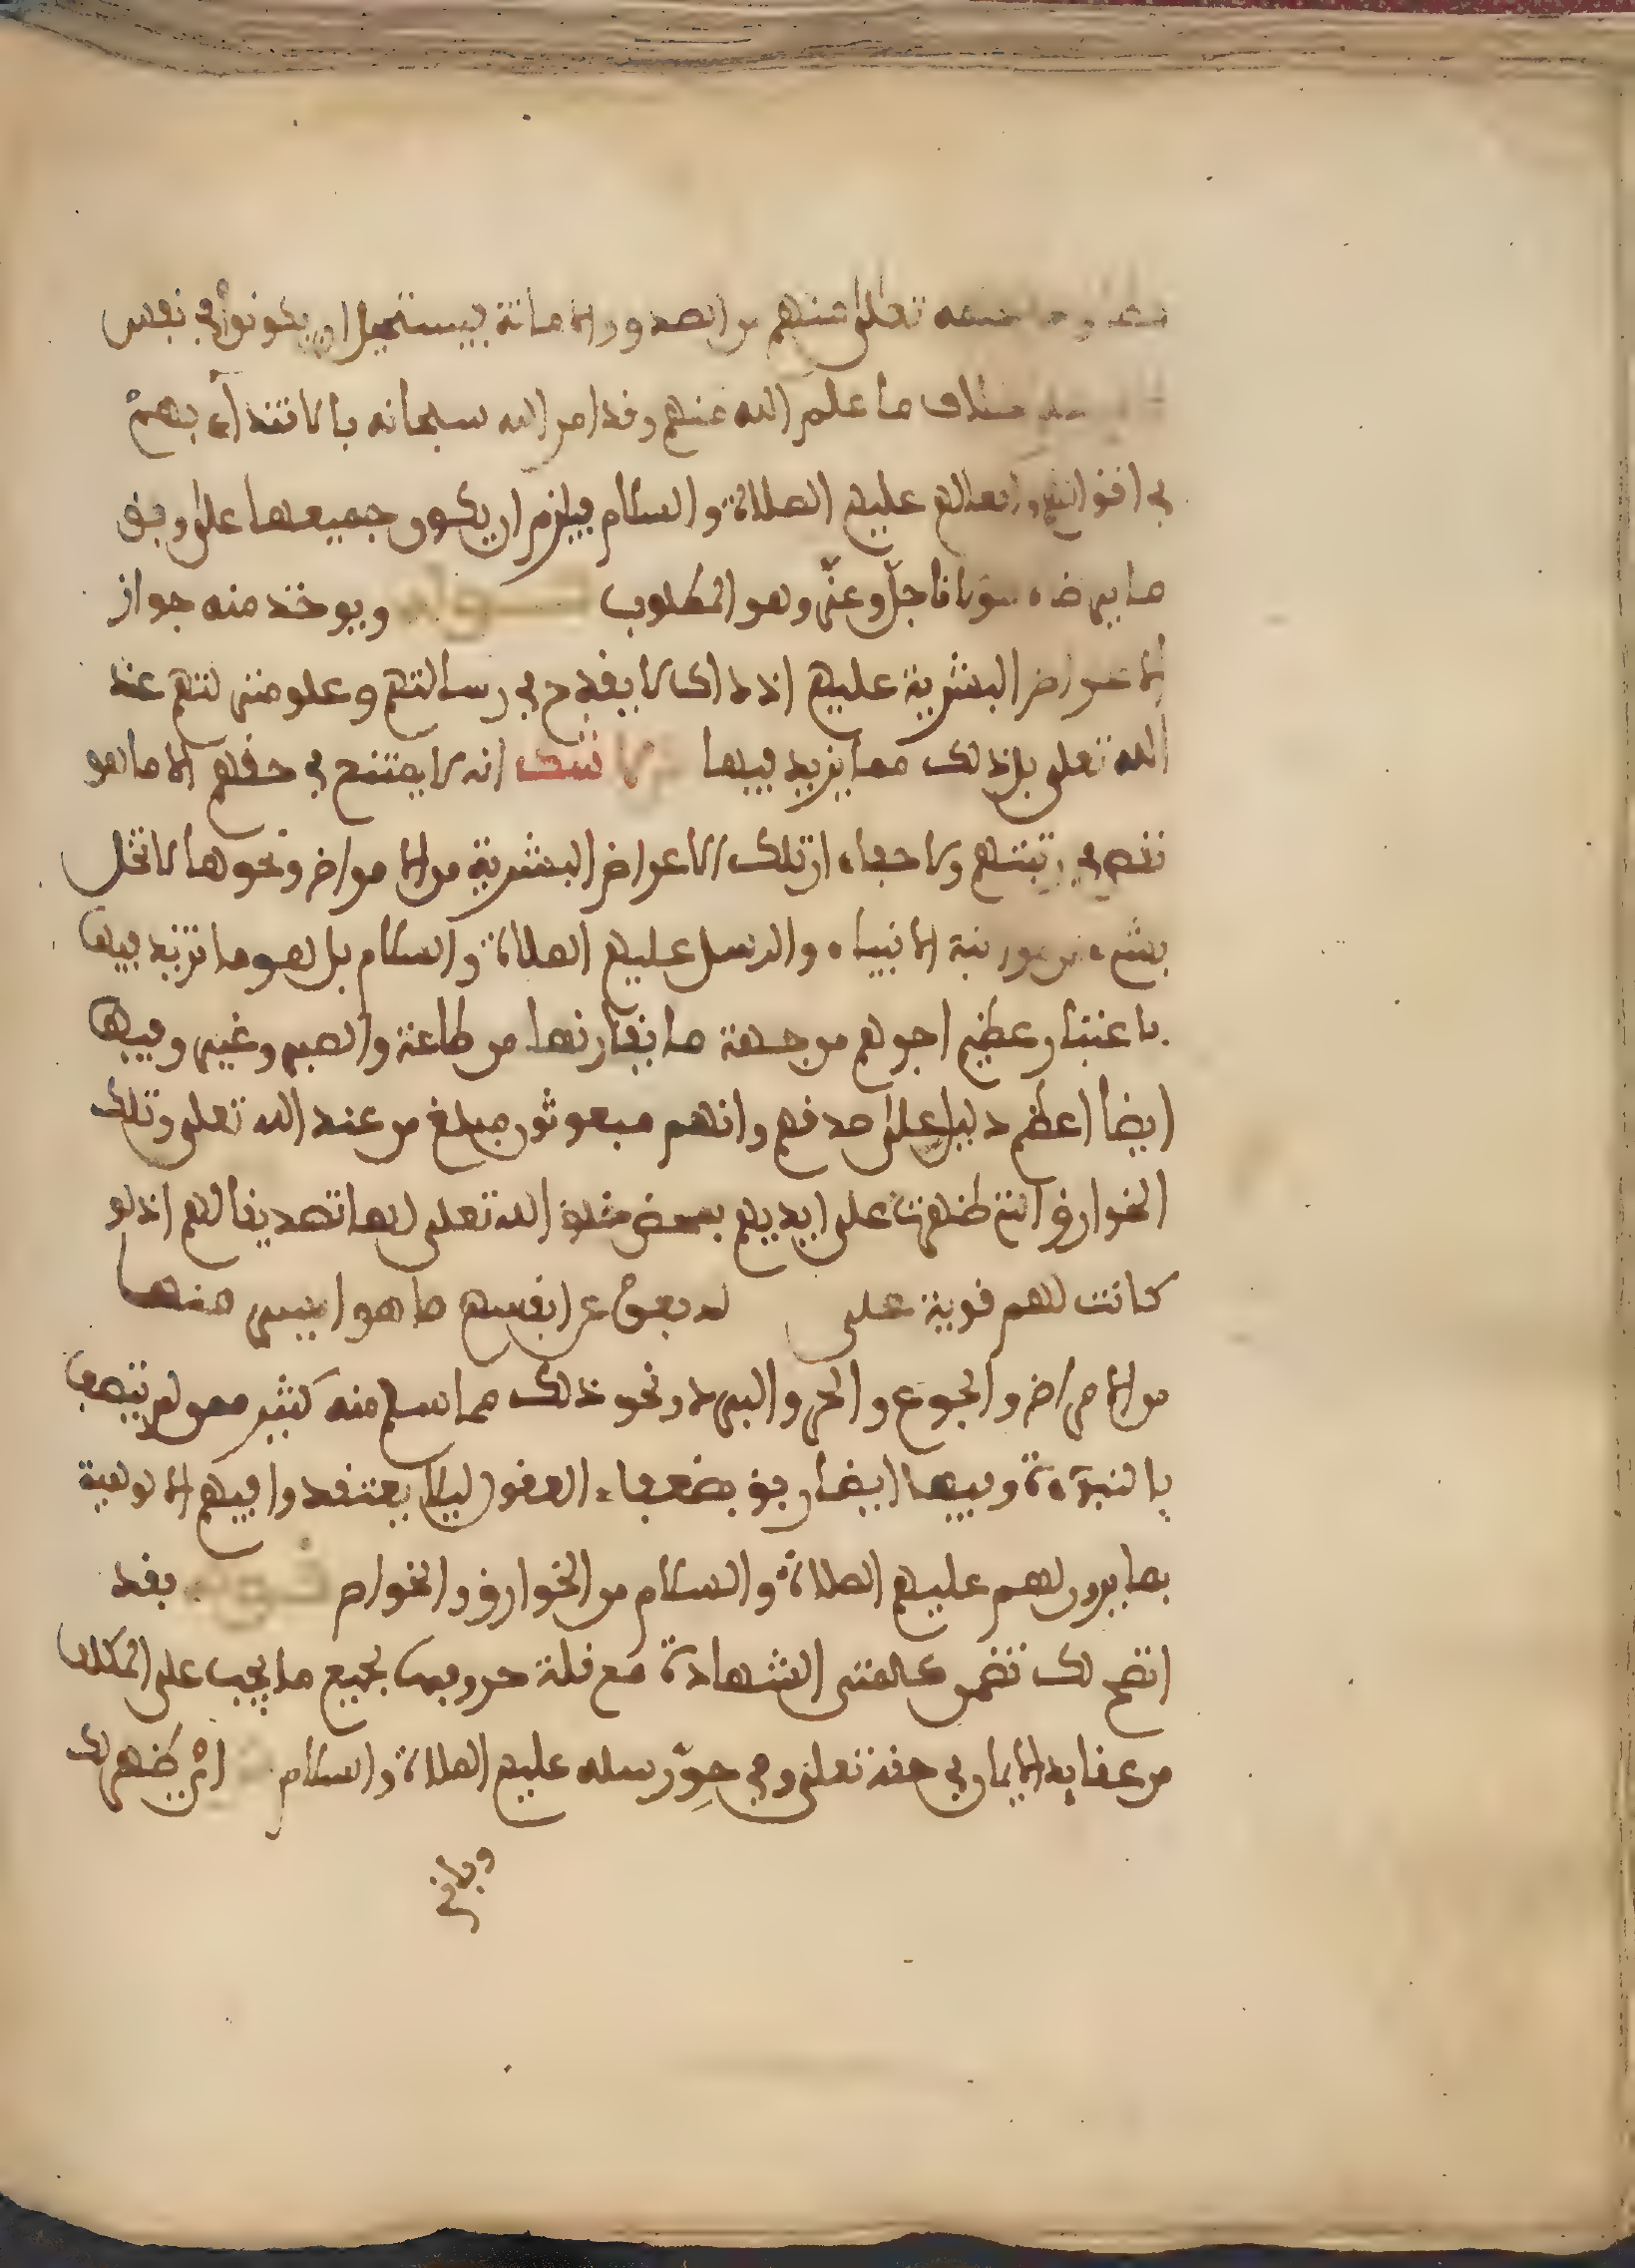 تعالى منهم من الصدق والامانة فيستحيل ان يكونوا في نفس
خلاف ما علم الله منهم وقد امر الله سبحانه بالاقتداء بهم
في اقوالهم وافعالهم عليهم الصلاة والسلام فيلزم ان يكون جميعها على وفق
ما يرضاه مولانا جل وعز وهو المطلوب ويوخذ منه جواز
الاعراض البشرية عليهم اذ ذاك لا يقدح في رسالتهم وعلو منزلتهم عند
الله تعلى بل ذلك مما يزيد فيها لا شك انه لا يمتنع في حقهم الا ما هو
نقص في رتبتهم ولا خفاء ان تلك الاعراض البشرية من الامراض ونحوها لا تخل
بشيء من رتبة الانبياء والرسل عليهم الصلاة والسلام بل هو مما تزيد فيها
باعتبار عظيم اجرهم من جهة ما يقارنها من طاعة والصبر وغيره وفيها
ايضا اعظم دليل على صدقهم وانهم مبعوثون مبلغ من عند الله تعلى وتلك
الخوارق التي ظهرت على ايديهم بمحض خلق الله تعلى لها تصديقا لهم اذ لو
كانت لهم قوية على لدفعوا عن انفسهم ما هو ايسر منها
من الامراض والجوع والحر والبرد ونحو ذلك مما سلم منه كثير ممن لم يتصف
بالنبوءة وفيها ايضا رفق بضعفاء العقول ليلا يعتقدوا فيهم الالوهية
بما يرون لهم عليهم الصلاة والسلام من الخوارق والخواص قوله فقد
اتضح لك تضمن كلمتى الشهادة مع قلة حروفها بجميع ما يجب على المكلف
من عقايد الايمان في حقه تعلى وفي حق رسله عليهم الصلاة والسلام اي ظهر لك